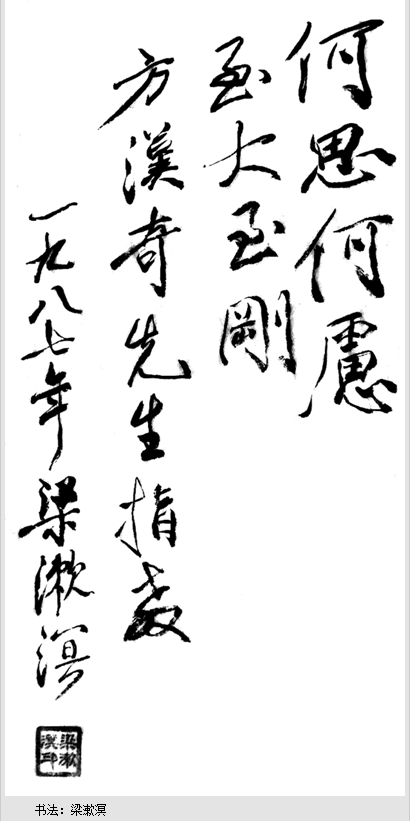 何思何慮
至大至剛
方漢奇先生指教
一九八七年梁漱溟
梁漱溟印
书法：梁漱溟